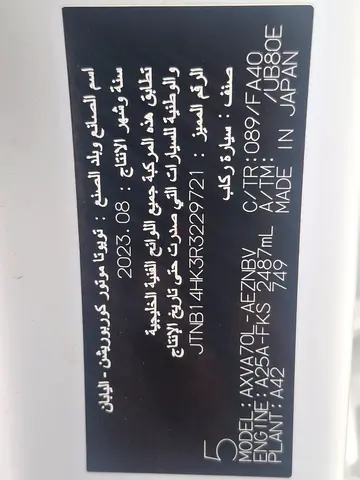 اسم الصانع وبلد الصنع : تويوتا موتور كوربوريشن - اليابان
سنة وشهر الانتاج : 2023.08
تطابق هذه المركبة جميع اللوائح الفنية الخليجية
والوطنية للسيارات التي صدرت حتى تاريخ الإنتاج
الرقم المميز : JTNB14HK3R3229721
صنف : سيارة ركاب
5
MODEL:AXVA70L-AEZNBV C/TR:089/FA40
ENGINE:A25A-FKS 2487mL A/TM: /UB80E
PLANT:A42 749 MADE IN JAPAN